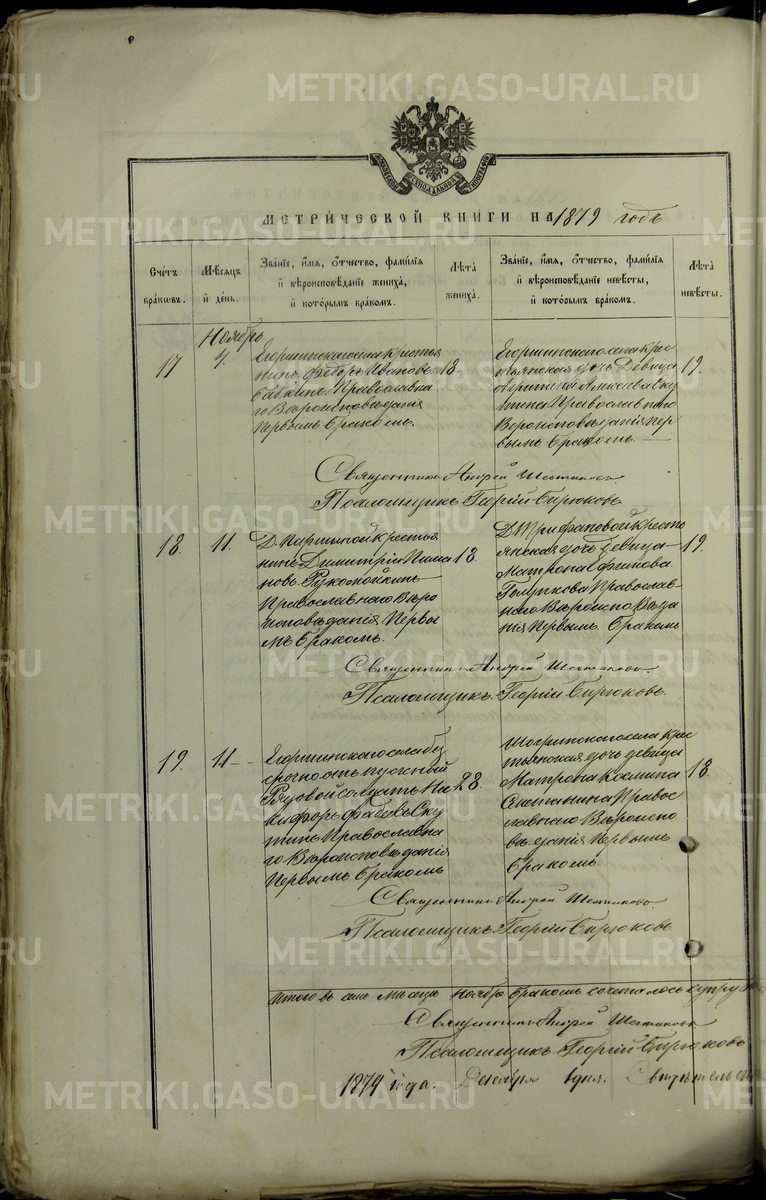 METRIKI.GASO-URAL.RU
МОСКОВСКОЙ СѴНОДАЛЬНОЙ ТИПОГРАФІИ
МЕТРИ́ЧЕСКОЙ КНИ́ГИ НА 1879 годъ
Сче́тъ бра́ковъ.
Мѣ́сяцъ и҆ де́нь.
Зва́нїе, и҆́мѧ, ѻ҆́тчество, фамилїѧ
и҆ вѣроисповѣ́данїе жениха̀,
и҆ кото́рымъ бра́комъ.
Лѣ́та жениха̀.
Зва́нїе, и҆́мѧ, ѻ҆́тчество, фамилїѧ
и҆ вѣроисповѣ́данїе невѣ́сты,
и҆ кото́рымъ бра́комъ.
Лѣ́та невѣ́сты.
Ноябрь
17
4.
Егоршинскаго села крестья
нинъ Федоръ Ивановъ
Бабкинъ Православна
го Вѣроисповѣданія
Первымъ бракомъ.
18.
Егоршинскаго села крес
тьянская дочь Девица
Алексѣева Ску
тина Православнаго
Вероисповѣданія пер
вымъ бракомъ
19.
Священникъ Андрей Шестаковъ
Псаломщикъ Георгій Бирюковъ
18.
11.
Д. Паршиной крестья
нинъ Димитрій Пима
новъ Рукомойкинъ
Православнаго Вѣро
исповѣданія Первы
мъ бракомъ.
18
Д. Трифановой кресть
янская дочь девица
Матрона Ефимова
Голубкова Православ-
наго Вѣроисповѣда
нія Первымъ бракомъ
19.
Священникъ Андрей Шестаковъ
Псаломщикъ Георгій Бирюковъ.
19.
11
Егоршинскаго села без
срочноотпускный
Рядовой солдатъ Ни
кифоръ Фадеевъ Ску
тинъ Православна
го Вѣроисповѣданія
Первымъ бракомъ
28
Шогринскаго села крес
тьянская дочь девица
Матрона Козмина
Сметанина Правос
лавнаго Вѣроиспо
вѣданія Первымъ
бракомъ.
18.
Священникъ Андрей Шестаковъ
Псаломщикъ Георгій Бирюковъ
Итого въ семъ мѣсяцѣ Ноябрѣ бракомъ сочеталось супру
Священникъ Андрей Шестаковъ
Псаломщикъ Георгій Бирюковъ
1879 года. Декабря 1 дня.